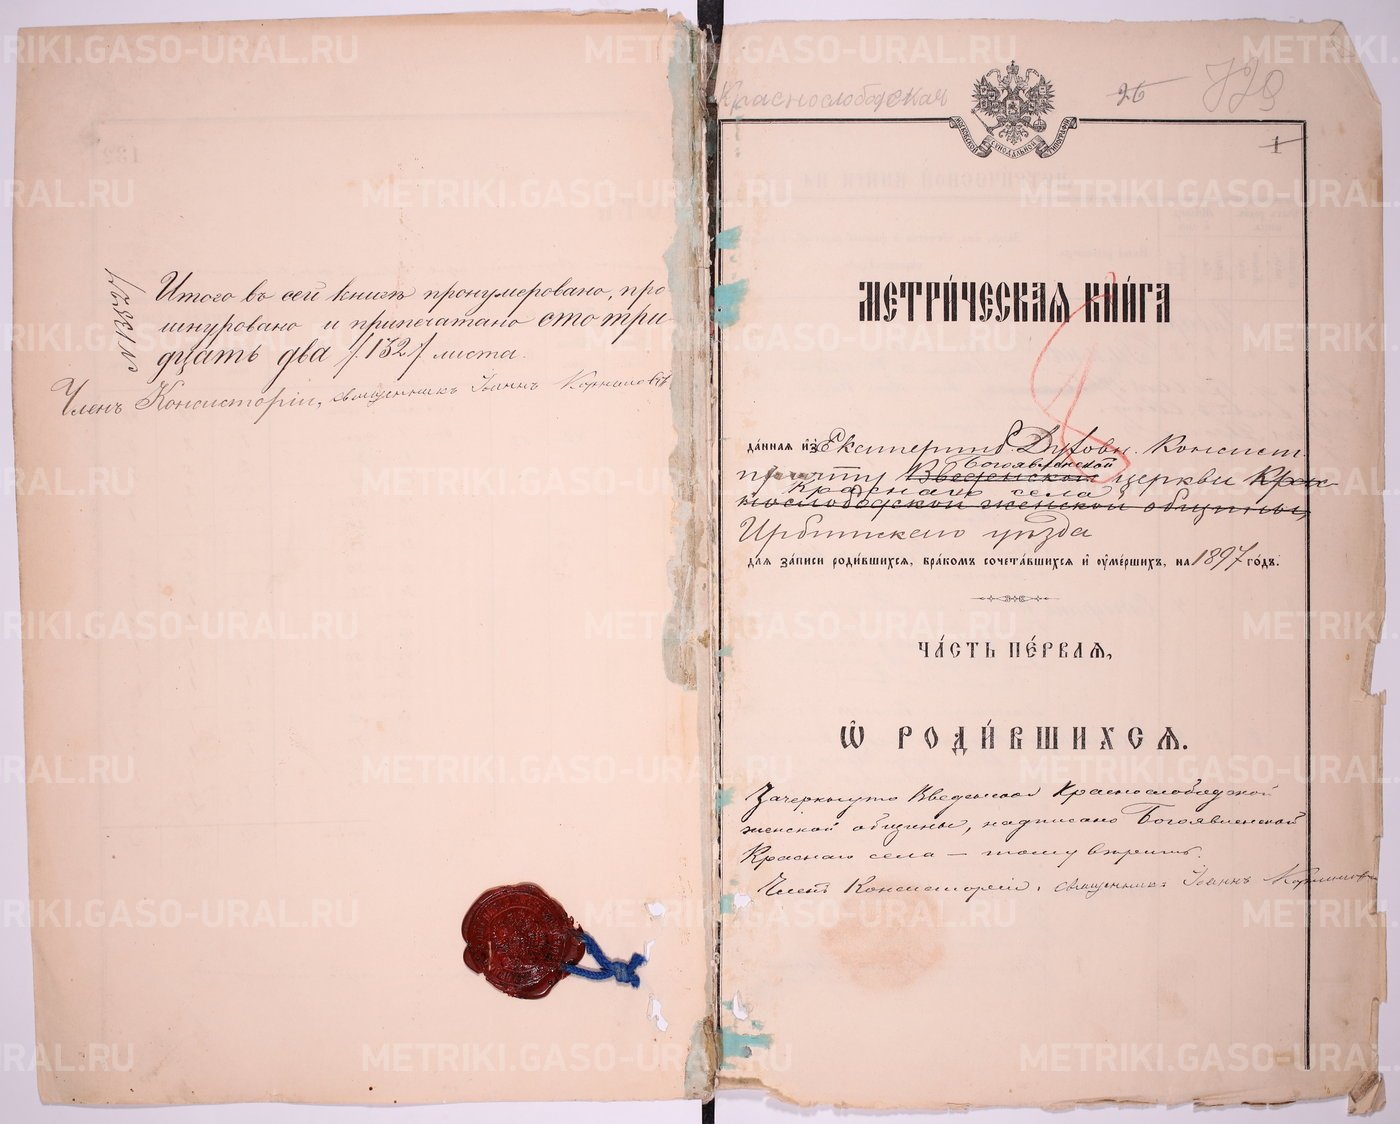 № 13321
Итого въ сей книгѣ пронумеровано, про
шнуровано и припечатано сто три
дцать два /132/ листа.
Членъ Консисторіи, священникъ Іоаннъ
Краснослободская
26
1
МОСКОВСКОЙ СѴНОДАЛЬНОЙ ТИПОГРАФІИ
МЕТРИ́ЧЕСКАѦ КНИ́ГА
да́нная и҆зъ Екатеринб. Духовн. Консист.
Богоявленской
причту Введенской церкви Крас
Краснаго села
нослободской женской общины,
Ирбитскаго уѣзда
для за́писи роди́вшихся, бра́комъ сочета́вшихся и҆ оуме́ршихъ, на 1897 го́дъ.
ЧА́СТЬ ПЕ́РВАѦ,
Ѡ҆ РОДИ́ВШИХСѦ.
Зачеркнуто Введенской Краснослободской
женской общины, надписано Богоявленской
Краснаго села – тому вѣрить.
Членъ Консисторіи, священникъ Іоаннъ
METRIKI.GASO-URAL.RU